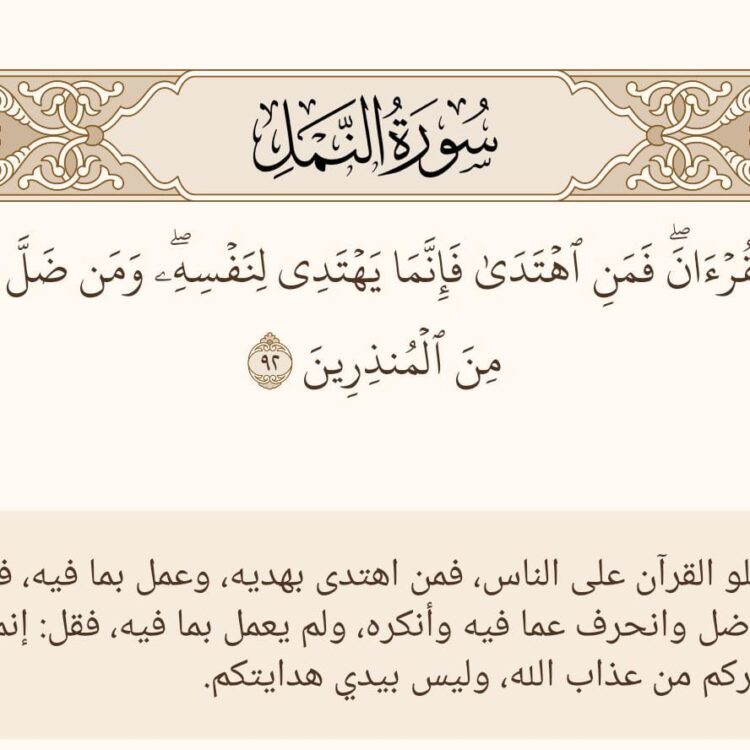 سُورَةُ النَّمْلِ
قُرْءَانَۖ فَمَنِ ٱهْتَدَىٰ فَإِنَّمَا يَهْتَدِى لِنَفْسِهِۦۖ وَمَن ضَلَّ
مِنَ ٱلْمُنذِرِينَ ٩٢
لو القرآن على الناس، فمن اهتدى بهديه، وعمل بما فيه، ف
ضل وانحرف عما فيه وأنكره، ولم يعمل بما فيه، فقل: إنم
ركم من عذاب الله، وليس بيدي هدايتكم.